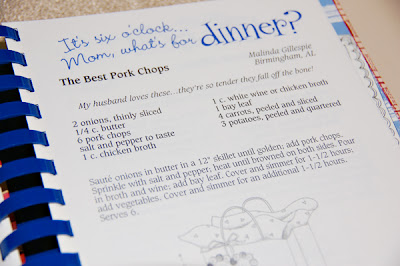 It's six o'clock...
Mom, what's for dinner?
The Best Pork Chops
Malinda Gillespie
Birmingham, AL
My husband loves these...they're so tender they fall off the bone!
2 onions, thinly sliced
1/4 c. butter
6 pork chops
salt and pepper to taste
1 c. chicken broth
1 c. white wine or chicken broth
1 bay leaf
4 carrots, peeled and sliced
3 potatoes, peeled and quartered
Sauté onions in butter in a 12" skillet until golden; add pork chops.
Sprinkle with salt and pepper; heat until browned on both sides. Pour
in broth and wine; add bay leaf. Cover and simmer for 1-1/2 hours;
add vegetables. Cover and simmer for an additional 1-1/2 hours.
Serves 6.